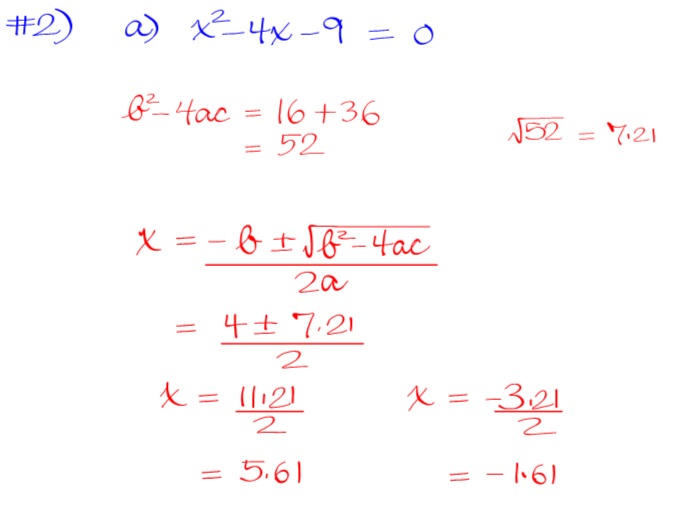 #2) a) x² - 4x - 9 = 0
b² - 4ac = 16 + 36
= 52
√52 = 7.21
x = -b ± √b² - 4ac
2a
= 4 ± 7.21
2
x = 11.21 x = -3.21
2 2
= 5.61 = -1.61